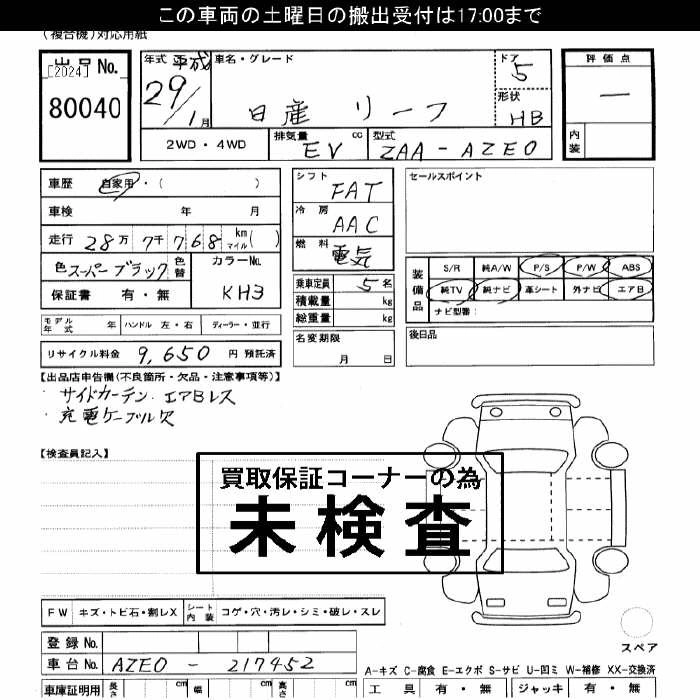 この車両の土曜日の搬出受付は17:00まで
(複合機)対応用紙
出品No.
[2024]
80040
年式 平成
29/1月
車名・グレード
日産 リーフ
ドア
5
形状
HB
評価点
—
内装
2WD・4WD
排気量 cc
EV
型式
ZAA-AZE0
車歴 自家用・( )
車検 年 月
走行 28万7千768 km マイル( )
色 スーパーブラック
色替
カラーNo.
KH3
保証書 有・無
シフト
FAT
冷房
AAC
燃料
電気
乗車定員 5名
積載量 kg
総重量 kg
セールスポイント
装備品
S/R 純A/W P/S P/W ABS
純TV 純ナビ 革シート 外ナビ エアB
ナビ型番:
モデル年式 年 ハンドル 左・右 ディーラー・並行
名変期限
月 日
後日品
リサイクル料金 9,650 円 預託済
【出品店申告欄(不良箇所・欠品・注意事項等)】
・サイドカーテン エアBレス
・充電ケーブル欠
【検査員記入】
買取保証コーナーの為
未検査
FW キズ・トビ石・割レX シート内装 コゲ・穴・汚レ・シミ・破レ・スレ
登録No.
車台No. AZE0-217452
車庫証明用 長さ cm 幅 cm 高さ cm
スペア
A-キズ C-腐食 E-エクボ S-サビ U-凹ミ W-補修 XX-交換済
工具 有・無 ジャッキ 有・無